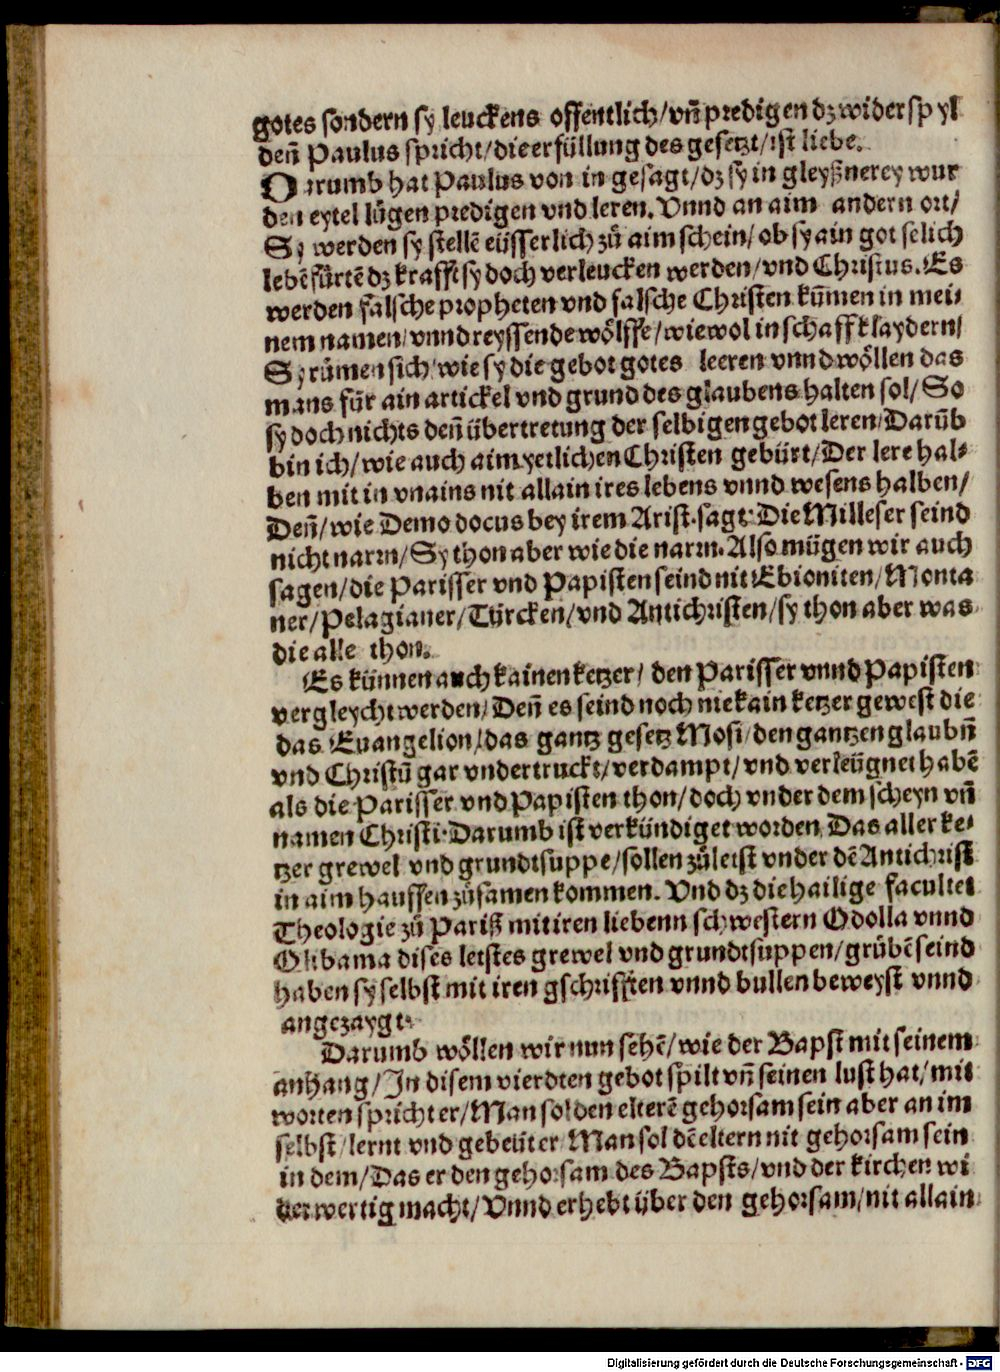 gotes sondern sy leuckens offentlich/ vñ predigen dz widerspyl
deñ Paulus spricht/ die erfüllung des gesetzt/ ist liebe.
Darumb hat Paulus von in gesagt/ dz sy in gleyßnerey wur
den eytel lügen predigen vnd leren. Vnnd an aim andern ort/
Sy werden sy stellē eüsserlich zů aim schein/ ob sy ain got selich
lebē fürtē dz krafft sy doch verleucken werden/ vnd Christus. Es
werden falsche propheten vnd falsche Christen kũmen in mei⸗
nem namen/ vnnd reyssende wölffe/ wiewol in schaff klaydern/
Sy rümen sich/ wie sy die gebot gotes leeren vnnd wöllen das
mans für ain artickel vnd grund des glaubens halten sol/ So
sy doch nichts deñ übertretung der selbigen gebot leren/ Darũb
bin ich/ wie auch aim yetlichen Christen gebürt/ Der lere hal⸗
ben mit in vnains nit allain ires lebens vnnd wesens halben/
Deñ/ wie Demo docus bey irem Arist. sagt: Die Milleser seind
nicht narrn/ Sy thon aber wie die narrn. Also mügen wir auch
sagen/ die Parisser vnd Papisten seind nit Ebioniten/ Monta
ner/ Pelagianer/ Türcken/ vnd Antichristen/ sy thon aber was
die alle thon.
Es künnen auch kainen ketzer/ den Parisser vnnd Papisten
vergleycht werden/ Deñ es seind noch nie kain ketzer gewest die
das Euangelion/ das gantz gesetz Mosi/ den gantzen glaubñ
vnd Christũ gar vndertruckt/ verdampt/ vnd verleügnet habē
als die Parisser vnd Papisten thon/ doch vnder dem scheyn vñ
namen Christi. Darumb ist verkündiget worden, Das aller ke⸗
tzer grewel vnd grundtsuppe/ sollen zůletst vnder dē Antichrist
in aim hauffen zůsamen kommen. Vnd dz die hailige facultet
Theologie zů Pariß mit iren liebenn schwestern Odolla vnnd
Olibama dises letstes grewel vnd grundtsuppen/ grůbē seind
haben sy selbst mit iren gschrifften vnnd bullen beweyst vnnd
angezaygt.
Darumb wöllen wir nun sehē/ wie der Bapst mit seinem
anhang/ In disem vierdten gebot spilt vñ seinen lust hat/ mit
worten spricht er/ Man sol den elterē gehorsam sein aber an im
selbst/ lernt vnd gebeüt er/ Man sol dē eltern nit gehorsam sein
in dem/ Das er den gehorsam des Bapsts/ vnd der kirchen wi
derwertig macht/ Vnnd erhebt über den gehorsam/ nit allain
Digitalisierung gefördert durch die Deutsche Forschungsgemeinschaft - DFG